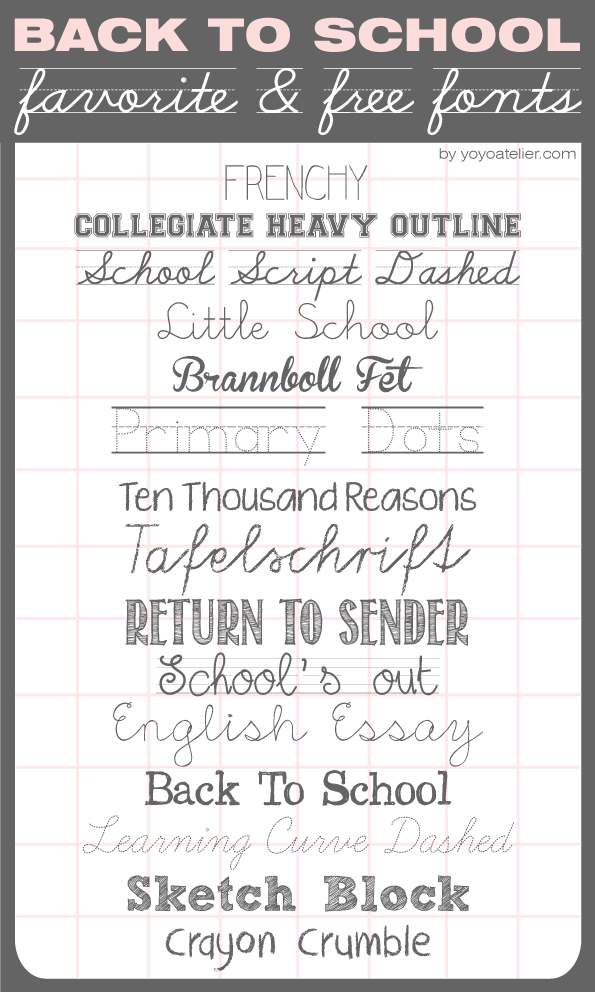 BACK TO SCHOOL
favorite & free fonts
by yoyoatelier.com
FRENCHY
COLLEGIATE HEAVY OUTLINE
School Script Dashed
Little School
Brannboll Fet
Primary Dots
Ten Thousand Reasons
Tafelschrift
RETURN TO SENDER
School's out
English Essay
Back To School
Learning Curve Dashed
Sketch Block
Crayon Crumble